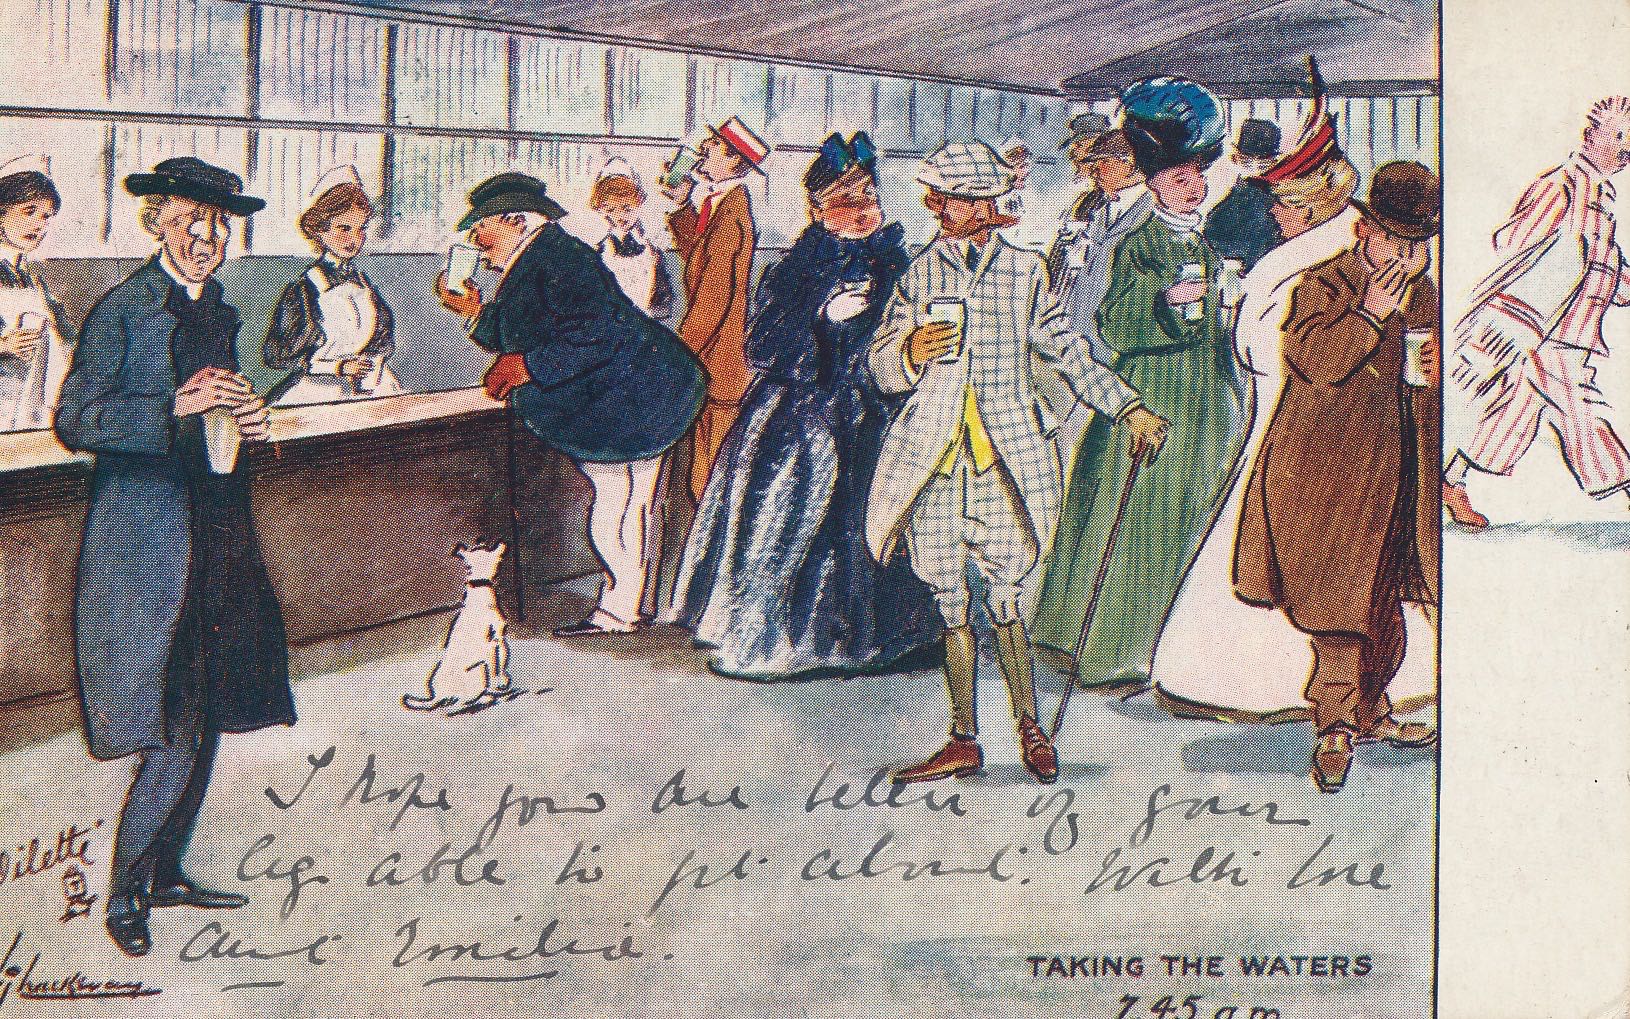 I hope you are better of your
leg able to get about. With love
Aunt Emilie.
Oilette
TAKING THE WATERS
7.45 a.m